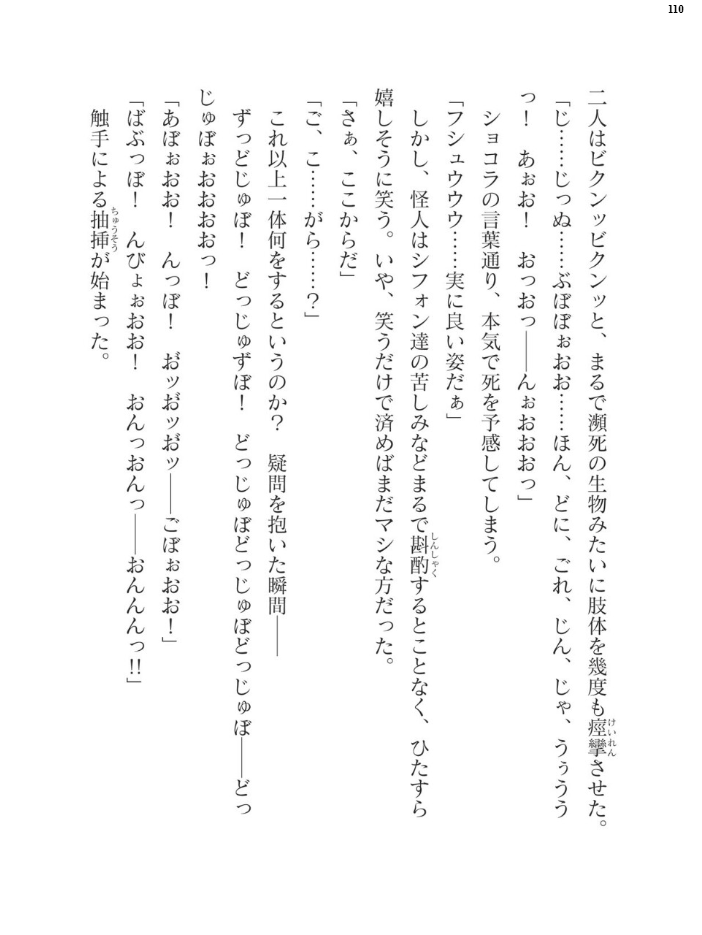 110
二人はビクンッビクンッと、まるで瀕死の生物みたいに肢体を幾度も痙攣させた。
けいれん
「じ……じっぬ……ぶぽぽぉおお……ほん、どに、ごれ、じん、じゃ、うぅうう
っ！　あぉお！　おっおっ――んぉおおおっ」
ショコラの言葉通り、本気で死を予感してしまう。
「フシュウウウ……実に良い姿だぁ」
しかし、怪人はシフォン達の苦しみなどまるで斟酌するとことなく、ひたすら
しんしゃく
嬉しそうに笑う。いや、笑うだけで済めばまだマシな方だった。
「さぁ、ここからだ」
「ご、こ……がら……？」
これ以上一体何をするというのか？　疑問を抱いた瞬間――
ずっどじゅぼ！　どっじゅずぼ！　どっじゅぼどっじゅぼどっじゅぼ――どっ
じゅぼぉおおおおっ！
「あぽぉおお！　んっぽ！　お゙ッお゙ッお゙ッ――ごぽぉおお！」
「ばぶっぽ！　んびょぉおお！　おんっおんっ――おんんんっ!!」
触手による抽挿が始まった。
ちゅうそう